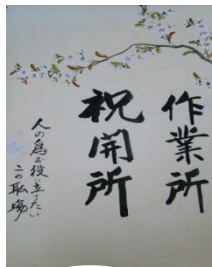 作業所
祝開所
人の為お役に立ちたい
この職場